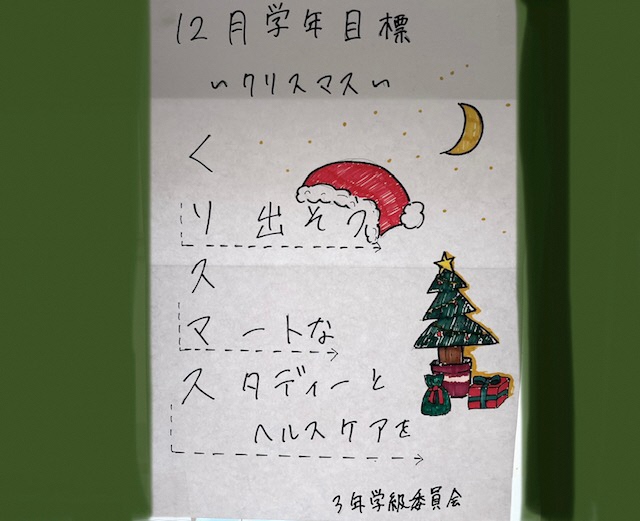 12月学年目標
〜クリスマス〜
く
り出そう
ス
マートな
スタディーと
ヘルスケアを
3年学級委員会